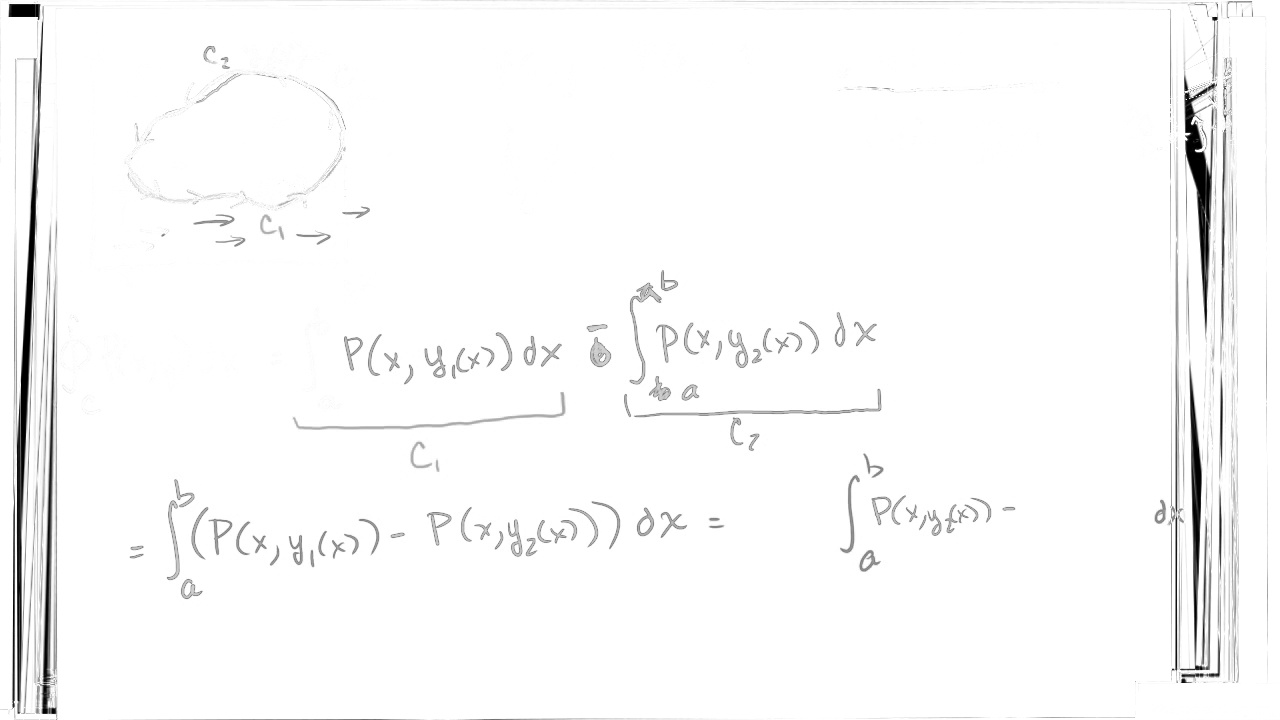 C₂
→ → C₁ → →
P(x, y₁(x)) dx - ∫ₐᵇ P(x, y₂(x)) dx
C₁ C₂
= ∫ₐᵇ (P(x, y₁(x)) - P(x, y₂(x))) dx = ∫ₐᵇ P(x, y₂(x)) - dx